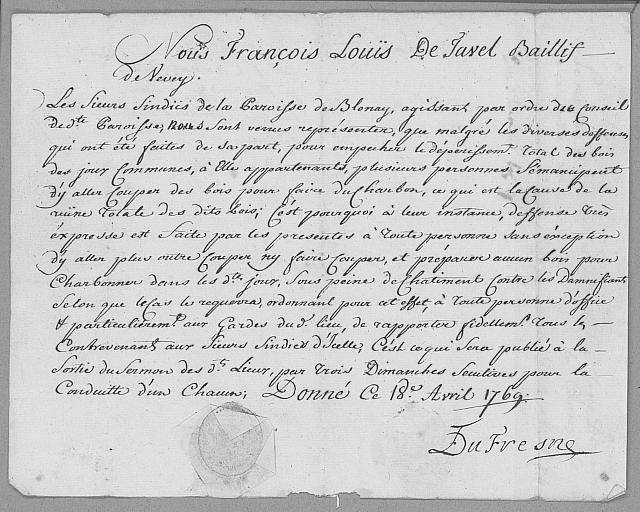 Noüs François Louïs De Tavel Baillif
de Vevey.
Les Sieurs Sindics de la Paroisse de Blonay, agissant par ordre du Conseil
de dte Paroisse, nous sont venus représenter, que malgré les diverses deffenses
qui ont été faites de sa part, pour empecher le dépérissemt total des bois
des joux Communes, à Elle appartenants, plusieurs personnes S'émancipent
d'y aller Couper des bois pour faire du Charbon, ce qui est la Cause de la
ruine totale des dits bois; C'est pourquoi à leur instance, deffense très
éxpresse est faite par les presentes à toute personne sans éxception
d'y aller plus outre Couper ny faire Couper, et préparer aucun bois pour
Charbonner dans les dtes joux, sous peine de Chatiment Contre les Damnifiants
Selon que le Cas le requerra, ordonnant pour cet effet, à toute personne d'office
& particulieremt aux Gardes du d. lieu, de rapporter fidellemt tous les
Contrevenants aux Sieurs Sindics d'Icelle; C'est ce qui Sera publié à la
Sortie du Sermon des dts Lieux, par trois Dimanches Seculives pour la
Conduitte d'un Chacun; Donné Ce 18e Avril 1769.
DuFresne